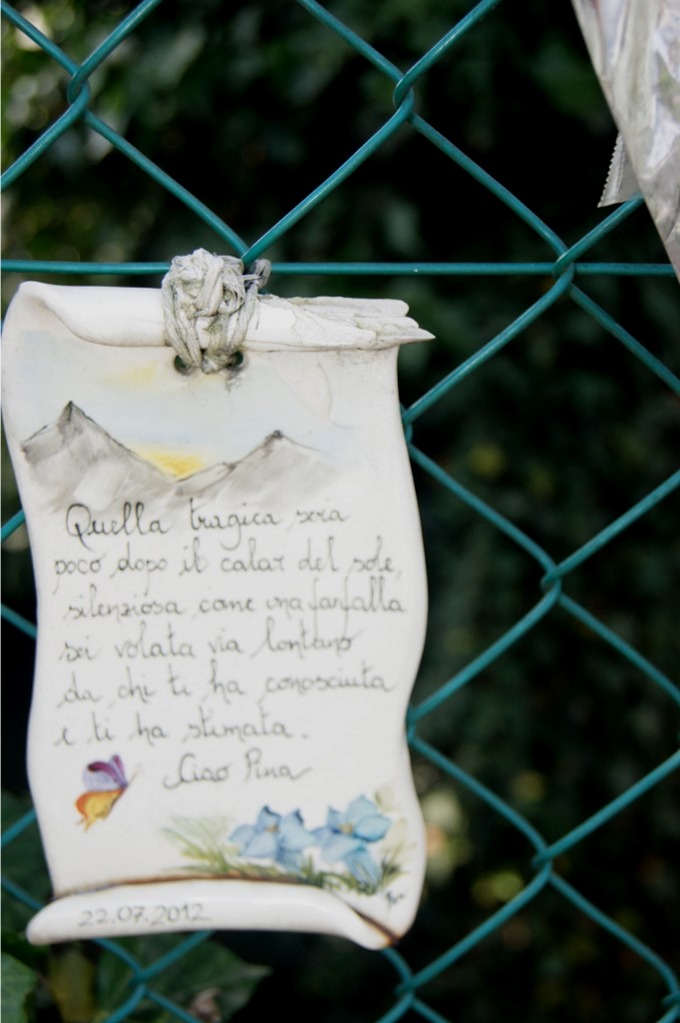 Quella tragica sera
poco dopo il calar del sole,
silenziosa come una farfalla
sei volata via lontano
da chi ti ha conosciuta
e ti ha stimata.
Ciao Pina
22.07.2012